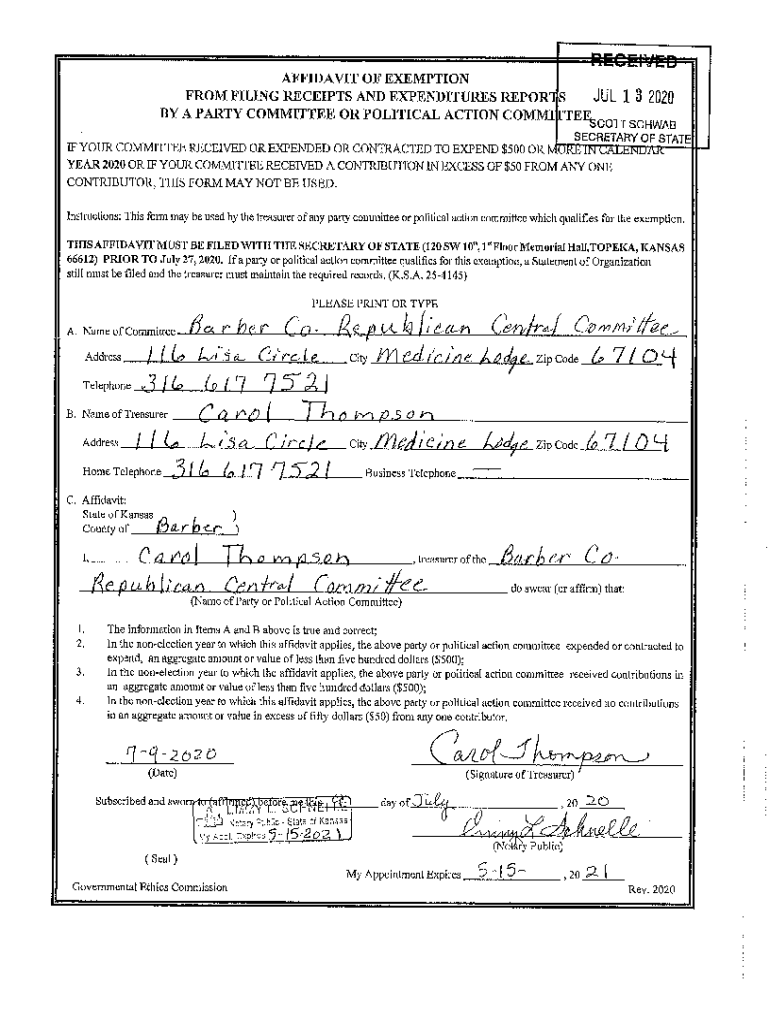 RECEIVED
AFFIDAVIT OF EXEMPTION
FROM FILING RECEIPTS AND EXPENDITURES REPORTS
JUL 13 2020
BY A PARTY COMMITTEE OR POLITICAL ACTION COMMITTEE
SCOTT SCHWAB
SECRETARY OF STATE
IF YOUR COMMITTEE RECEIVED OR EXPENDED OR CONTRACTED TO EXPEND $500 OR MORE IN CALENDAR
YEAR 2020 OR IF YOUR COMMITTEE RECEIVED A CONTRIBUTION IN EXCESS OF $50 FROM ANY ONE
CONTRIBUTOR, THIS FORM MAY NOT BE USED.
Instructions: This form may be used by the treasurer of any party committee or political action committee which qualifies for the exemption.
THIS AFFIDAVIT MUST BE FILED WITH THE SECRETARY OF STATE (120 SW 10th, 1st Floor Memorial Hall, TOPEKA, KANSAS
66612) PRIOR TO July 27, 2020. If a party or political action committee qualifies for this exemption, a Statement of Organization
still must be filed and the treasurer must maintain the required records. (K.S.A. 25-4145)
PLEASE PRINT OR TYPE
A. Name of Committee Barber Co. Republican Central Committee
Address 116 Lisa Circle City Medicine Lodge Zip Code 67104
Telephone 316 617 7521
B. Name of Treasurer Carol Thompson
Address 116 Lisa Circle City Medicine Lodge Zip Code 67104
Home Telephone 316 617 7521 Business Telephone —
C. Affidavit:
State of Kansas )
County of Barber )
I, Carol Thompson, treasurer of the Barber Co.
Republican Central Committee do swear (or affirm) that:
(Name of Party or Political Action Committee)
1. The information in Items A and B above is true and correct;
2. In the non-election year to which this affidavit applies, the above party or political action committee expended or contracted to
expend, an aggregate amount or value of less than five hundred dollars ($500);
3. In the non-election year to which the affidavit applies, the above party or political action committee received contributions in
an aggregate amount or value of less than five hundred dollars ($500);
4. In the non-election year to which this affidavit applies, the above party or political action committee received no contributions
in an aggregate amount or value in excess of fifty dollars ($50) from any one contributor.
7-9-2020 Carol Thompson
(Date) (Signature of Treasurer)
Subscribed and sworn to (affirmed) before me this day of July, 20 20
Notary Public - State of Kansas
My Appt. Expires 5-15-2021
(Notary Public)
(Seal)
My Appointment Expires 5-15-, 20 21
Governmental Ethics Commission Rev. 2020